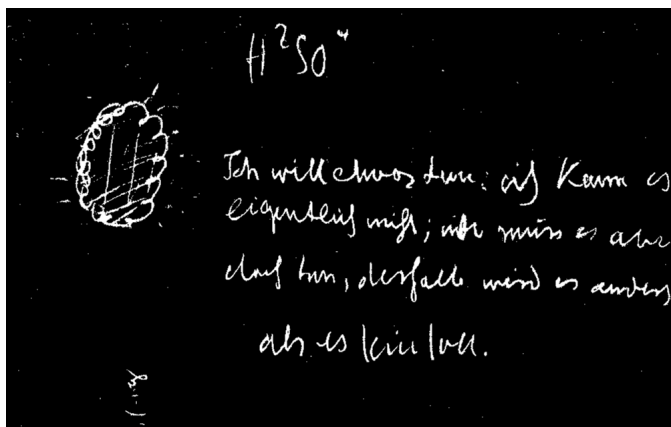 H²SO⁴
Ich will etwas tun: ich kann es
eigentlich nicht; ich muss es aber
doch tun, deshalb wird es anders
als es sein soll.